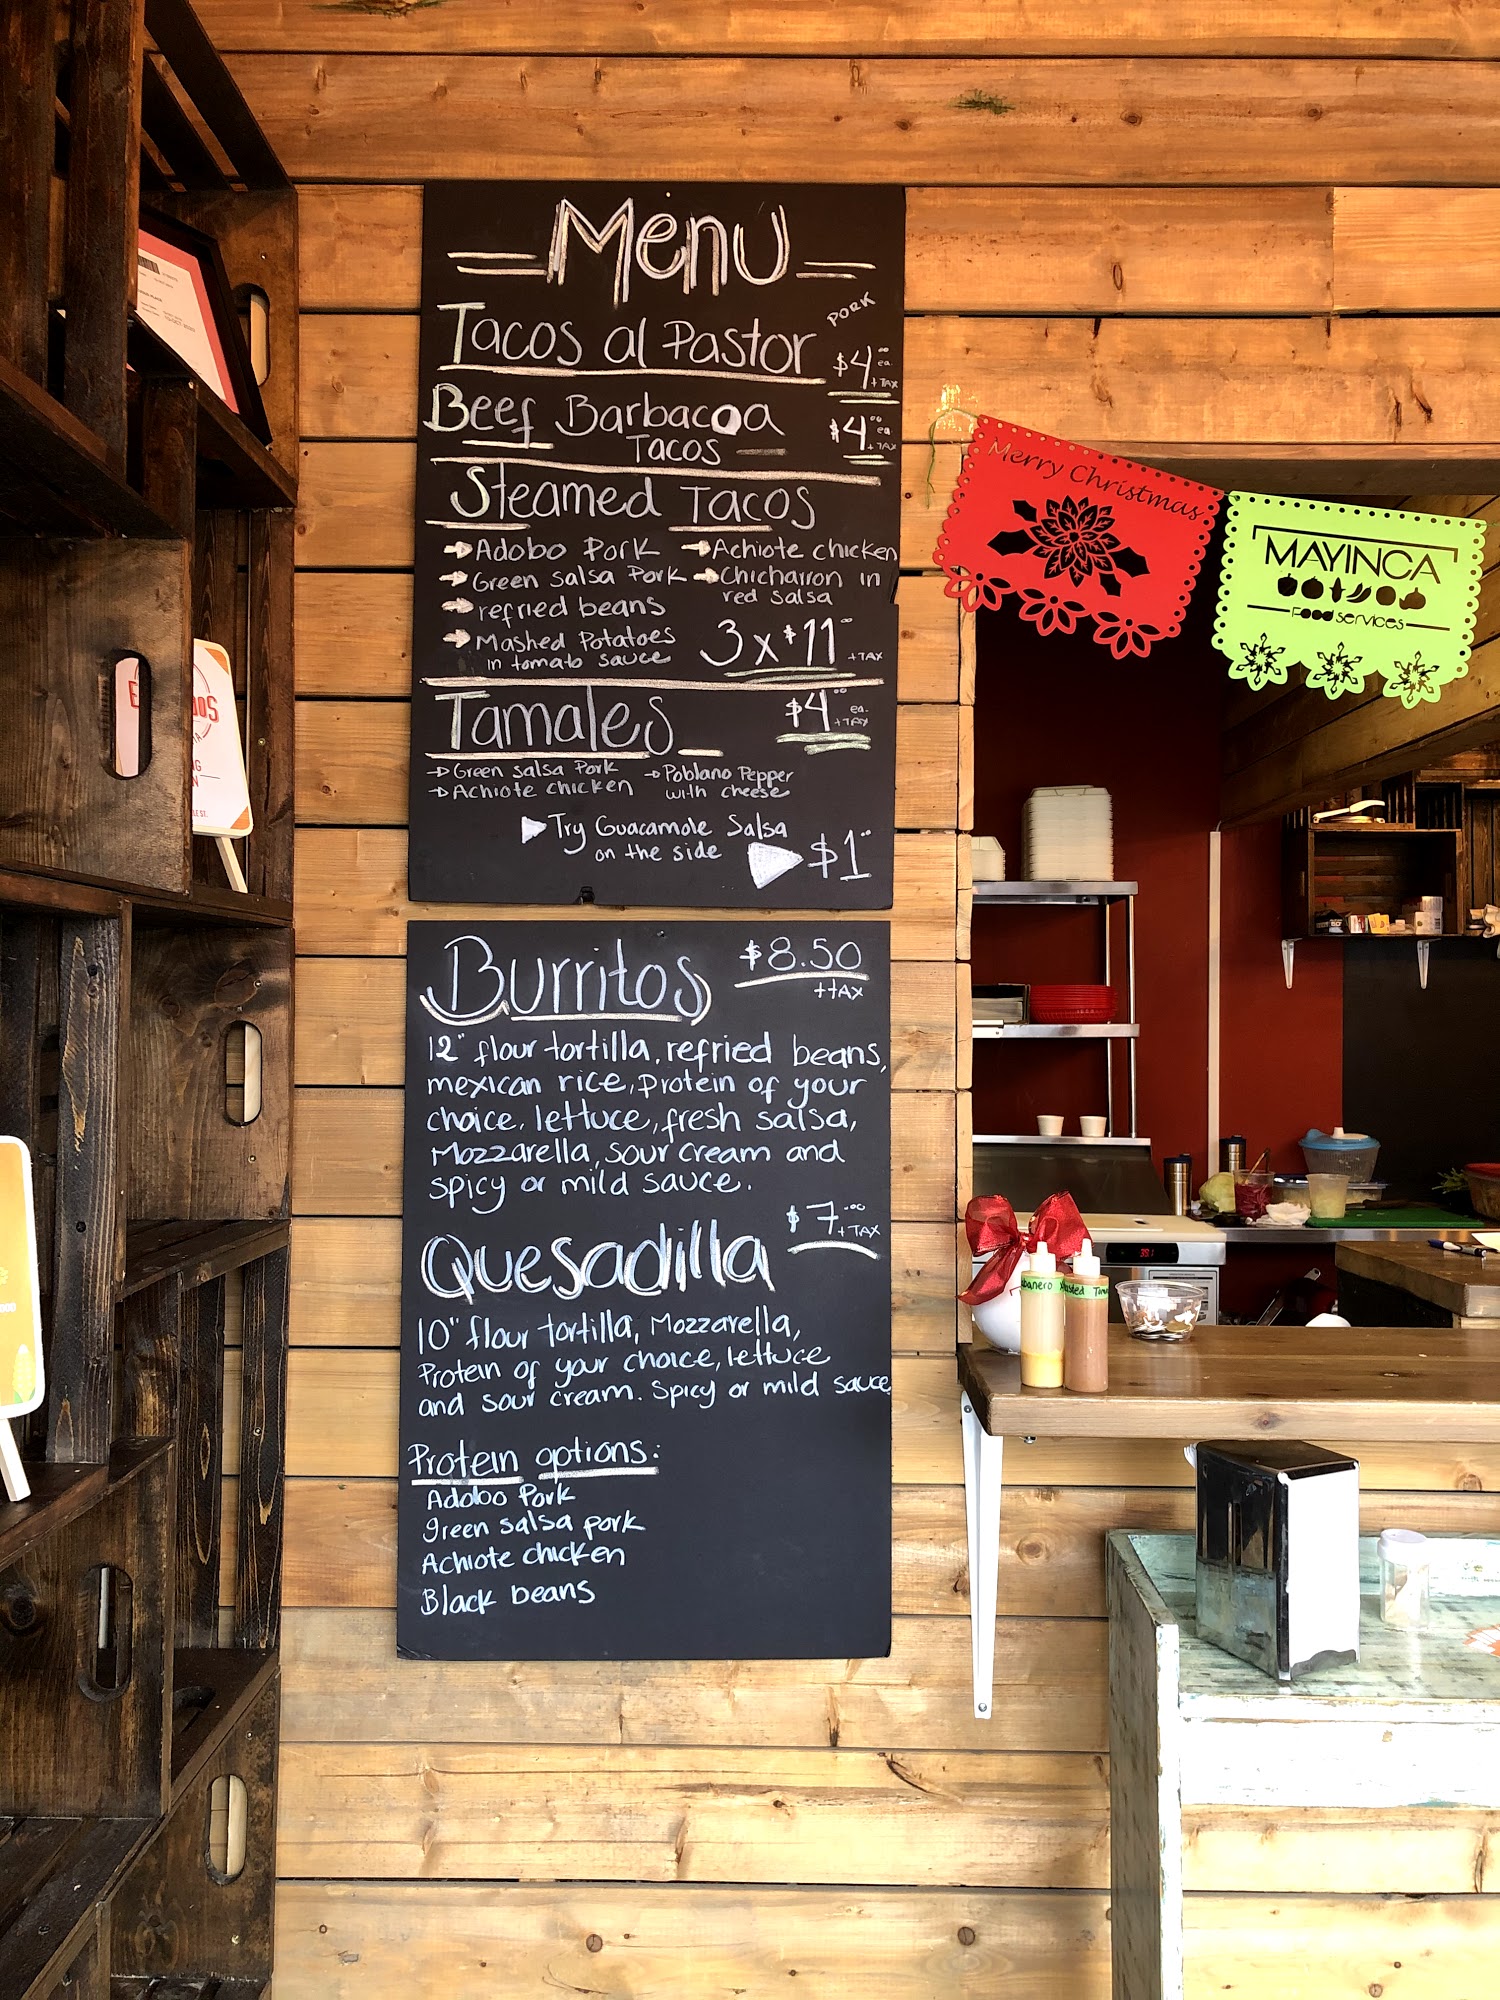 Menu
Tacos al Pastor
PORK
$4.00 ea.
+TAX
Beef Barbacoa
Tacos
$4.00 ea
+TAX
Steamed Tacos
Adobo Pork
Achiote chicken
Green salsa Pork
Chicharron in
red salsa
refried beans
Mashed Potatoes
in tomato sauce
3 x $11.00
+TAX
Tamales
$4.00 ea.
+TAX
Green salsa Pork
Achiote chicken
Poblano Pepper
with cheese
Try Guacamole Salsa
on the side
$1.00
Burritos
$8.50
+tAX
12" flour tortilla, refried beans,
mexican rice, protein of your
choice, lettuce, fresh salsa,
Mozzarella, sour cream and
spicy or mild sauce.
Quesadilla
$7.00
+TAX
10" flour tortilla, Mozzarella,
Protein of your choice, lettuce
and sour cream. Spicy or mild sauce.
Protein options:
Adobo Pork
green salsa pork
Achiote chicken
Black beans
Merry Christmas
MAYINCA
Food services